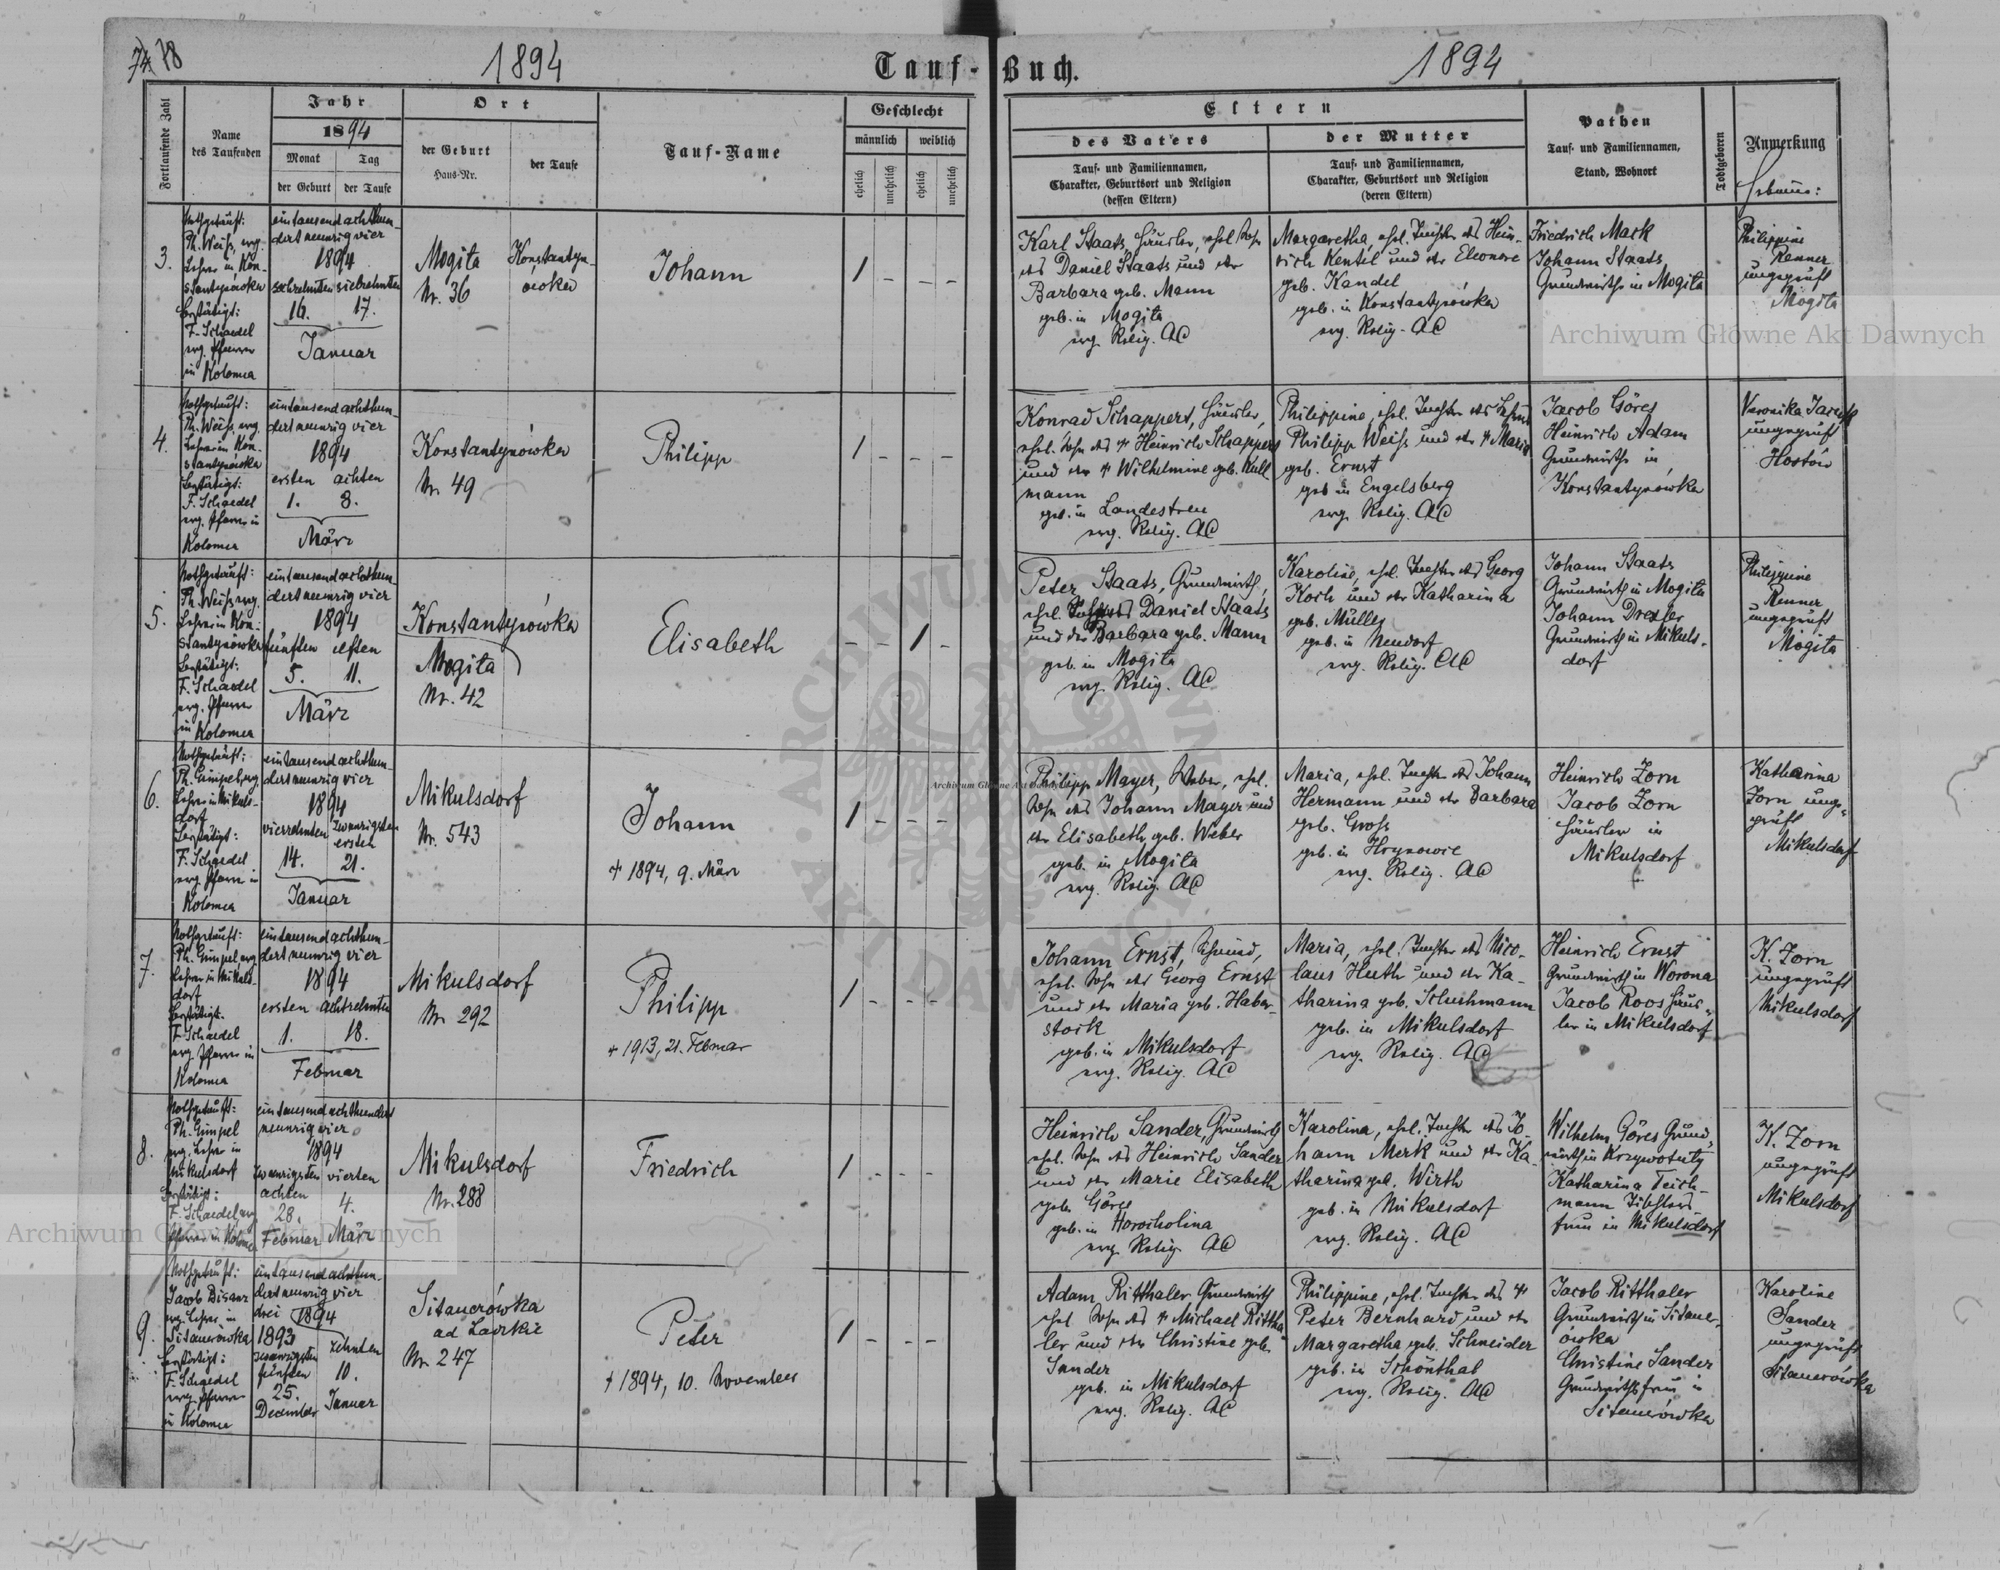 74 78
1894
Tauf-Buch.
1894
Fortlaufende Zahl
Name
des Taufenden
Jahr
1894
Monat
Tag
der Geburt
der Taufe
Ort
der Geburt
Haus-Nr.
der Taufe
Tauf-Name
Geschlecht
männlich
weiblich
ehelich
unehelich
ehelich
unehelich
Eltern
des Vaters
Tauf- und Familiennamen,
Charakter, Geburtsort und Religion
(dessen Eltern)
der Mutter
Tauf- und Familiennamen,
Charakter, Geburtsort und Religion
(deren Eltern)
Pathen
Tauf- und Familiennamen,
Stand, Wohnort
Todtgeboren
Anmerkung
Hebamme:
3.
Nothgetauft:
Ph. Weiss, evg.
Lehrer in Kon-
stantynówka
Bestätigt:
F. Schaedel
evg. Pfarrer
in Kolomea
eintausendachthun-
dertneunzigvier
1894
sechzehnten siebzehnten
16. 17.
Januar
Mogita
Nr. 36
Konstantyn-
ówka
Johann
1 - - -
Karl Staats, Häusler, ehel. Sohn
des Daniel Staats und der
Barbara geb. Mann
geb. in Mogita
evg. Relig. AC
Margaretha, ehel. Tochter des Hein-
rich Kentel und der Eleonore
geb. Kandel
geb. in Konstantynówka
evg. Relig. AC
Friedrich Mark
Johann Staats
Grundwirthe in Mogita
Philippine
Renner
ungeprüft
Mogita
4.
Nothgetauft:
Ph. Weiss, evg.
Lehrer in Kon-
stantynówka
Bestätigt:
F. Schaedel
evg. Pfarrer in
Kolomea
eintausendachthun-
dertneunzigvier
1894
ersten achten
1. 8.
März
Konstantynówka
Nr. 49
Philipp
1 - - -
Konrad Schappert, Häusler,
ehel. Sohn des + Heinrich Schappert
und der + Wilhelmine geb. Kull
mann
geb. in Landestreu
evg. Relig. AC
Philippine, ehel. Tochter des Lehrers
Philipp Weiss und der + Maria
geb. Ernst
geb in Engelsberg
evg. Relig. AC
Jacob Göres
Heinrich Adam
Grundwirthe in
Konstantynówka
Veronika
ungeprüft
Hostów
5.
Nothgetauft:
Ph. Weiss evg.
Lehrer in Kon-
stantynówka
Bestätigt:
F. Schaedel
evg. Pfarrer
in Kolomea
eintausendachthun-
dertneunzigvier
1894
fünften elften
5. 11.
März
Konstantynówka
Mogita
Nr. 42
Elisabeth
- - 1 -
Peter Staats, Grundwirth,
ehel. Sohn des Daniel Staats
und der Barbara geb. Mann
geb. in Mogita
evg. Relig. AC
Karoline, ehel. Tochter des Georg
Koch und der Katharina
geb. Müller
geb. in Neudorf
evg. Relig. AC
Johann Staats
Grundwirth in Mogita
Johann Drexler
Grundwirth in Mikuls-
dorf
Philippine
Renner
ungeprüft
Mogita
6.
Nothgetauft:
Ph. Gimpel, evg.
Lehrer in Mikuls-
dorf
Bestätigt:
F. Schaedel
evg. Pfarrer in
Kolomea
eintausendachthun-
dertneunzigvier
1894
vierzehnten zwanzigsten
ersten
14. 21.
Januar
Mikulsdorf
Nr. 543
Johann
+ 1894, 9. März
1 - - -
Philipp Mayer, Weber, ehel.
Sohn des Johann Mayer und
der Elisabeth geb. Weber
geb. in Mogita
evg. Relig. AC
Maria, ehel. Tochter des Johann
Hermann und der Barbara
geb. Gross
geb. in Hrynowie
evg. Relig. AC
Heinrich Zorn
Jacob Zorn
Häusler in
Mikulsdorf
Katharina
Zorn unge-
prüft
Mikulsdorf
7.
Nothgetauft:
Ph. Gimpel, evg
Lehrer in Mikuls-
dorf
Bestätigt:
F. Schaedel
evg. Pfarrer in
Kolomea
eintausendachthun-
dertneunzigvier
1894
ersten achtzehnten
1. 18.
Februar
Mikulsdorf
Nr. 292
Philipp
+ 1913, 21. Februar
1 - - -
Johann Ernst, Schmied,
ehel. Sohn des Georg Ernst
und der Maria geb. Haber-
stock
geb. in Mikulsdorf
evg. Relig. AC
Maria, ehel. Tochter des Nico-
laus Huth und der Ka-
tharina geb. Schuhmann
geb. in Mikulsdorf
evg. Relig. AC
Heinrich Ernst
Grundwirth in Worona
Jacob Roos Häus-
ler in Mikulsdorf
K. Zorn
ungeprüft
Mikulsdorf
8.
Nothgetauft:
Ph. Gimpel
evg. Lehrer in
Mikulsdorf
Bestätigt:
F. Schaedel, evg
Pfarrer in Kolomea
eintausendachthundert
neunzigvier
1894
zwanzigsten vierten
achten
28. 4.
Februar März
Mikulsdorf
Nr. 288
Friedrich
1 - - -
Heinrich Sander, Grundwirth
ehel. Sohn des Heinrich Sander
und der Marie Elisabeth
geb. Göres
geb. in Horocholina
evg. Relig. AC
Karolina, ehel. Tochter des Jo-
hann Merk und der Ka-
tharina geb. Wirth
geb. in Mikulsdorf
evg. Relig. AC
Wilhelm Göres Grund-
wirth in Krzywotuly
Katharina Teich-
mann Tischlers-
frau in Mikulsdorf
K. Zorn
ungeprüft
Mikulsdorf
9.
Nothgetauft:
Jacob Bisanz
evg. Lehrer in
Sitauerówka
Bestätigt:
F. Schaedel
evg. Pfarrer
in Kolomea
eintausendachthun-
dertneunzig vier
drei 1894
1893
zwanzigsten zehnten
fünften
25. 10.
December Januar
Sitauerówka
ad Ladzkie
Nr. 247
Peter
+ 1894, 10. November
1 - - -
Adam Ritthaler Grundwirth
ehel Sohn des + Michael Rittha
ler und der Christine geb.
Sander
geb. in Mikulsdorf
evg. Relig. AC
Philippine, ehel. Tochter des +
Peter Bernhard und der
Margaretha geb. Schneider
geb. in Schönthal
evg. Relig. AC
Jacob Ritthaler
Grundwirth in Sitauer-
ówka
Christine Sander
Grundwirthsfrau in
Sitauerówka
Karoline
Sander
ungeprüft
Sitauerówka
Archiwum Główne Akt Dawnych
Archiwum Główne Akt Dawnych
Archiwum Główne Akt Dawnych